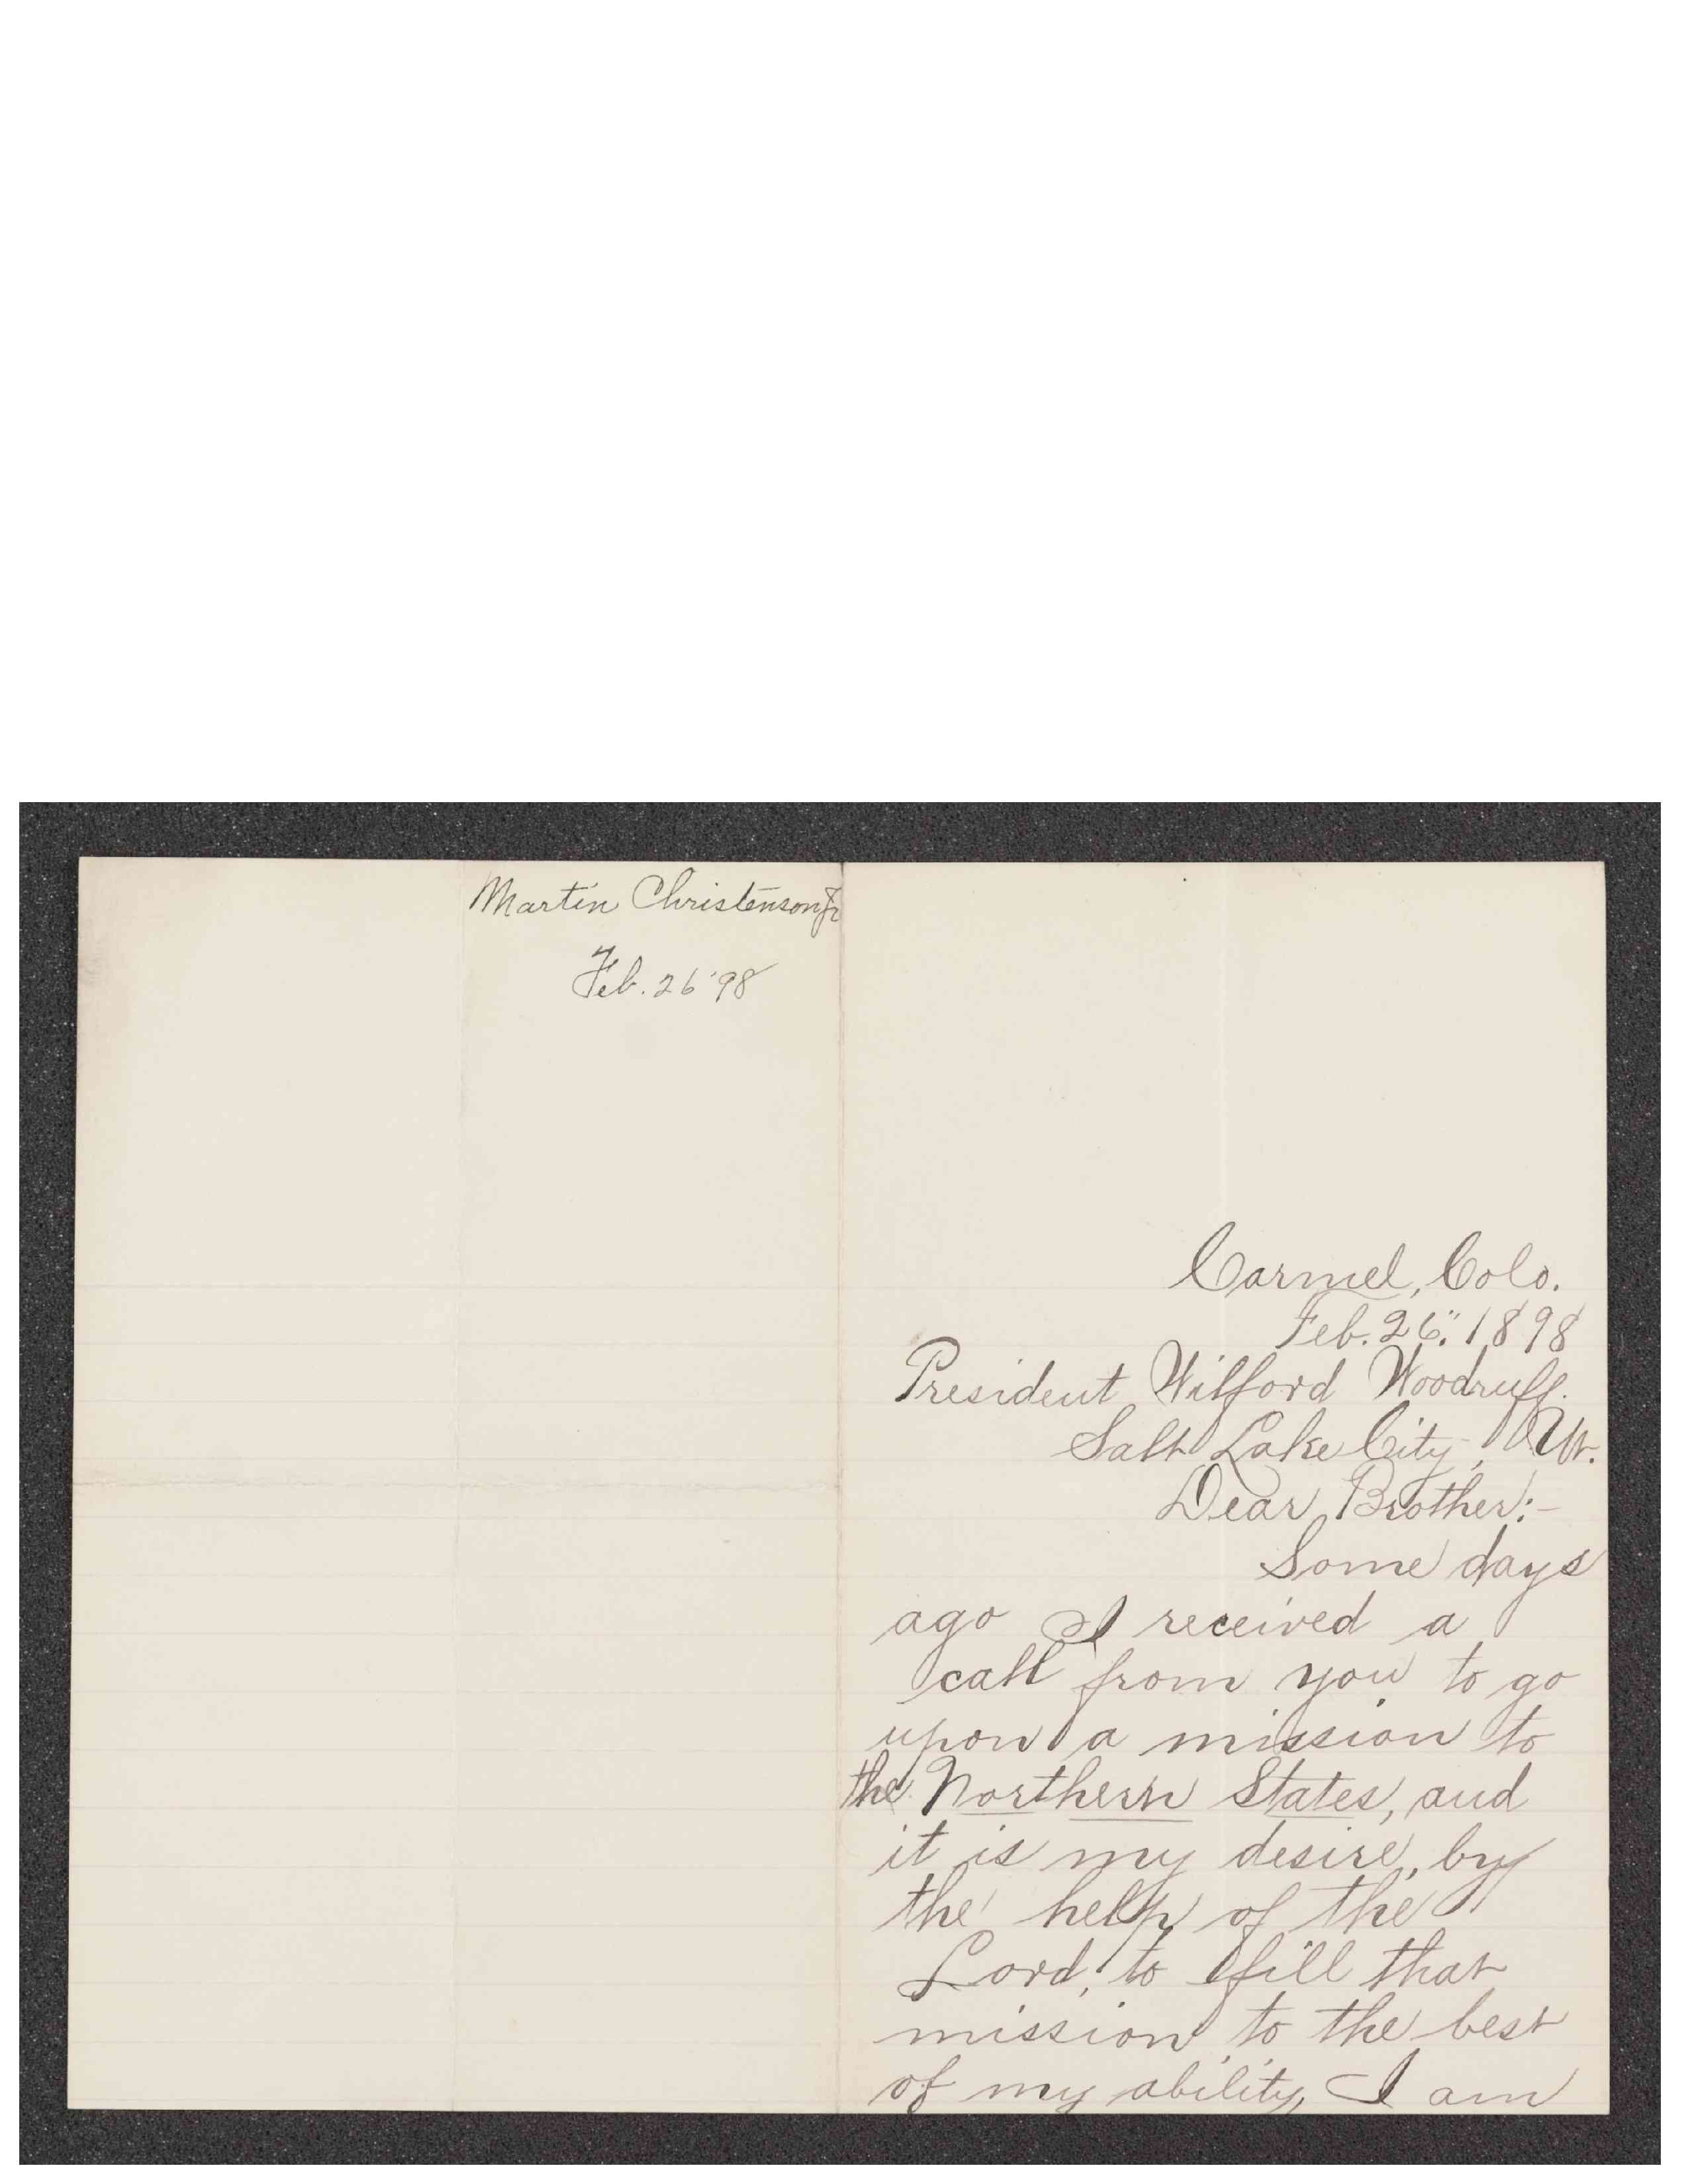 Martin Christenson Jr
Feb. 26 '98
Carmel, Colo.
Feb. 26". 1898
President Wilford Woodruff.
Salt Lake City, Ut.
Dear Brother:-
Some days
ago I received a
call from you to go
upon a mission to
the Northern States, and
it is my desire, by
the help of the
Lord, to fill that
mission to the best
of my ability, I am